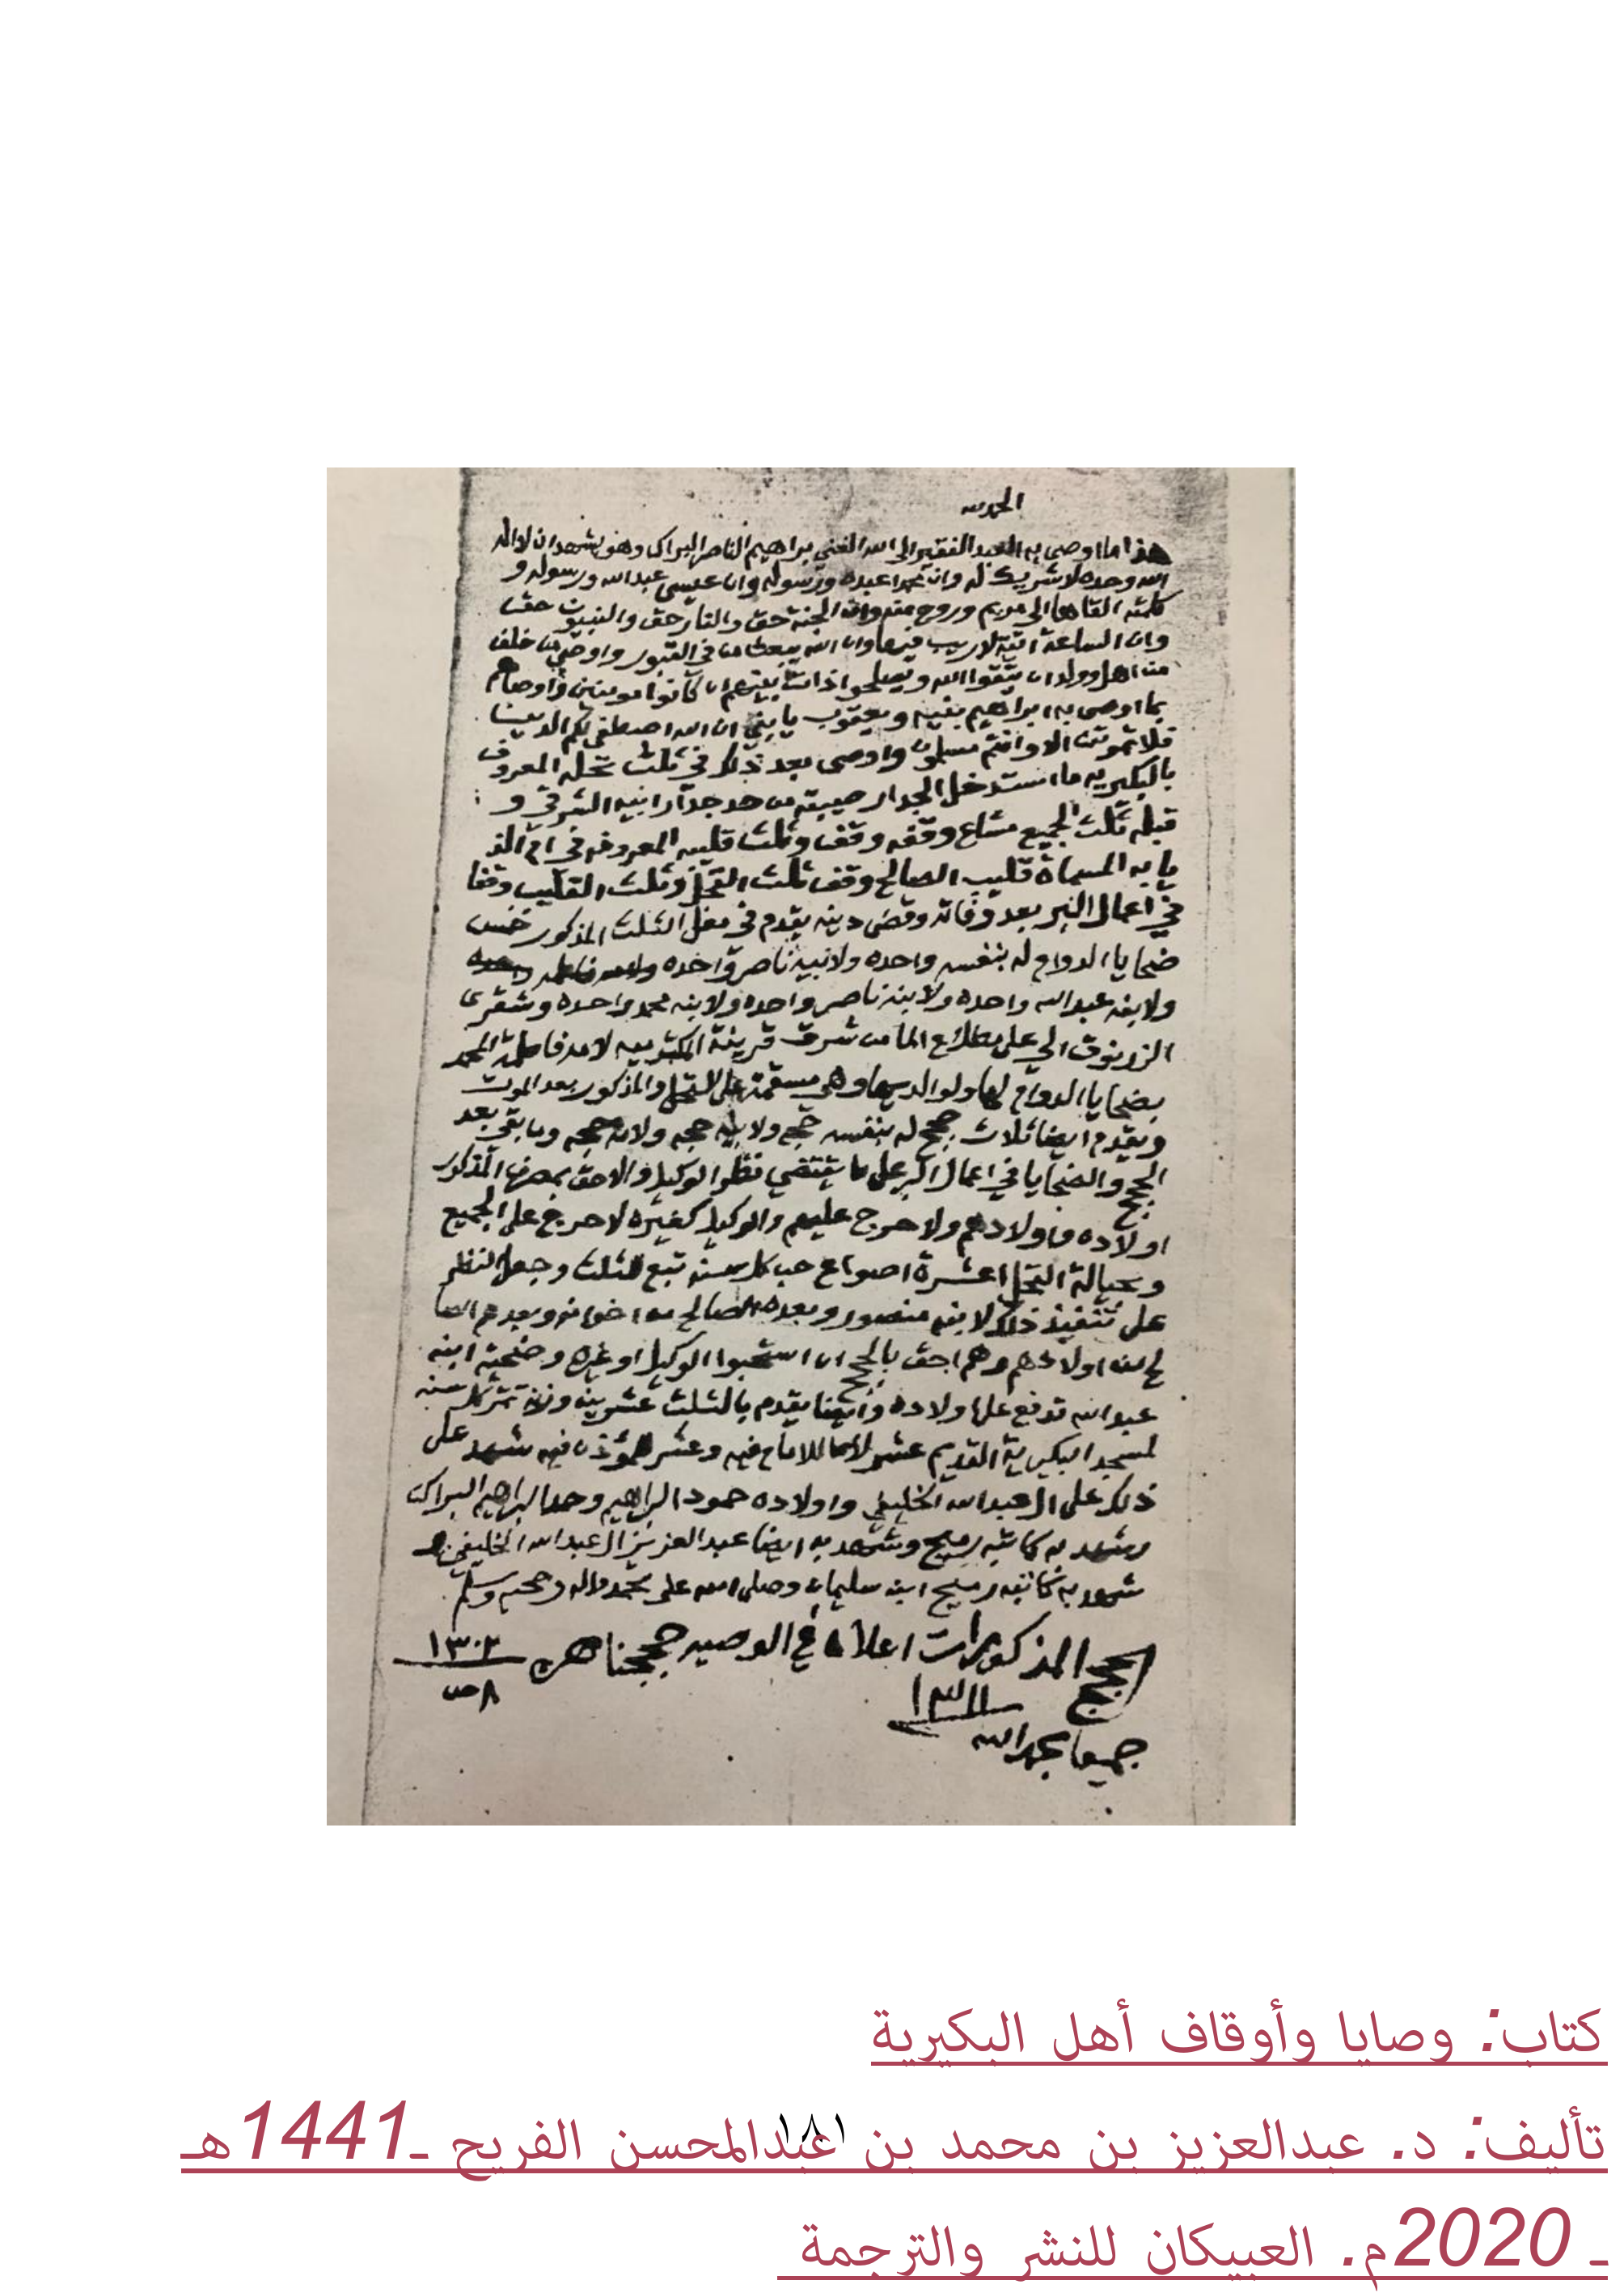 الحمد لله
هذا ما اوصى به العبد الفقير الى الله الغني ابراهيم الناصر البراك وهو يشهد ان لا اله الا
الله وحده لا شريك له وان محمدا عبده ورسوله وان عيسى عبدالله ورسوله و
كلمته القاها الى مريم وروح منه وان الجنة حق والنار حق والنبيون حق
وان الساعة اتية لا ريب فيها وان الله يبعث من في القبور واوصى من خلف
من اهل وولد ان يتقوا الله ويصلحوا ذات بينهم ان كانوا مومنين واوصاهم
بما اوصى به ابراهيم بنيه ويعقوب يا بني ان الله اصطفى لكم الدين
فلا تموتن الا وانتم مسلمون واوصى بعد ذلك في ثلث نخله المعروف
بالبكيريه ما استدخل الجدار من حد جدار ابيه الشرقي و
قبله ثلث الجميع مشاع وقفه وقف وثلث قليبه المعروفه في ام الذ
يابه المسماة قليب الصالح وقف ثلث النخل وثلث القليب وقفا
في اعمال البر بعد وفاته وقضى دينه يقدم في مغل الثلث المذكور خمس
ضحايا الدوام له بنفسه واحده ولابيه ناصر واحده
ولابنه عبدالله واحده ولابنه ناصر واحده ولابنه محمد واحده وشقرى
الزرنوق الي على مطلاع الما من شرق لامه فاطمة المحمد
بضحايا الدوام لها ولوالديها وهي على النخل والمذكور بعد الموت
ويقدم ايضا ثلاث حجج له بنفسه حجه ولابيه حجه ولامه حجه وما بقى بعد
الحجج والضحايا في اعمال البر على ما يقتضي نظر الوكيل والاحق بمصرفها المذكور
اولاده واولادهم ولا حرج عليهم والوكيل كغيره لا حرج على الجميع
النخل عشرة اصواع حب كل سنه تبع للثلث وجعل النظر
على تنفيذ ذلك لابنه منصور وبعده الصالح من اخوانه وبعدهم الصا
لح من اولادهم وهم احق بالحجج ان استحبوا الوكيل او غيره وضحية ابنه
عبدالله تدفع على اولاده وايضا يقدم بالثلث عشرين وزنة تمر كل سنه
لمسجد البكيرية القديم عشر للامام فيه وعشر للمؤذن فيه شهد على
ذلك علي ال عبدالله الخليفي واولاده حمود البراهيم وحمد البراهيم البراك
وشهد به كاتبه رميح وشهد به ايضا عبدالعزيز ال عبدالله الخليفي
شهد به كاتبه رميح ابن سليمان وصلى الله على محمد واله وصحبه وسلم
١٣٠٣
٨ ص
الحجج المذكورات اعلاه في الوصيه حججناهن
١٣١١
جميعا بحمدالله
كتاب: وصايا وأوقاف أهل البكيرية
تأليف: د. عبدالعزيز بن محمد بن عبدالمحسن الفريح ـ1441هـ
١٨١
ـ 2020م. العبيكان للنشر والترجمة